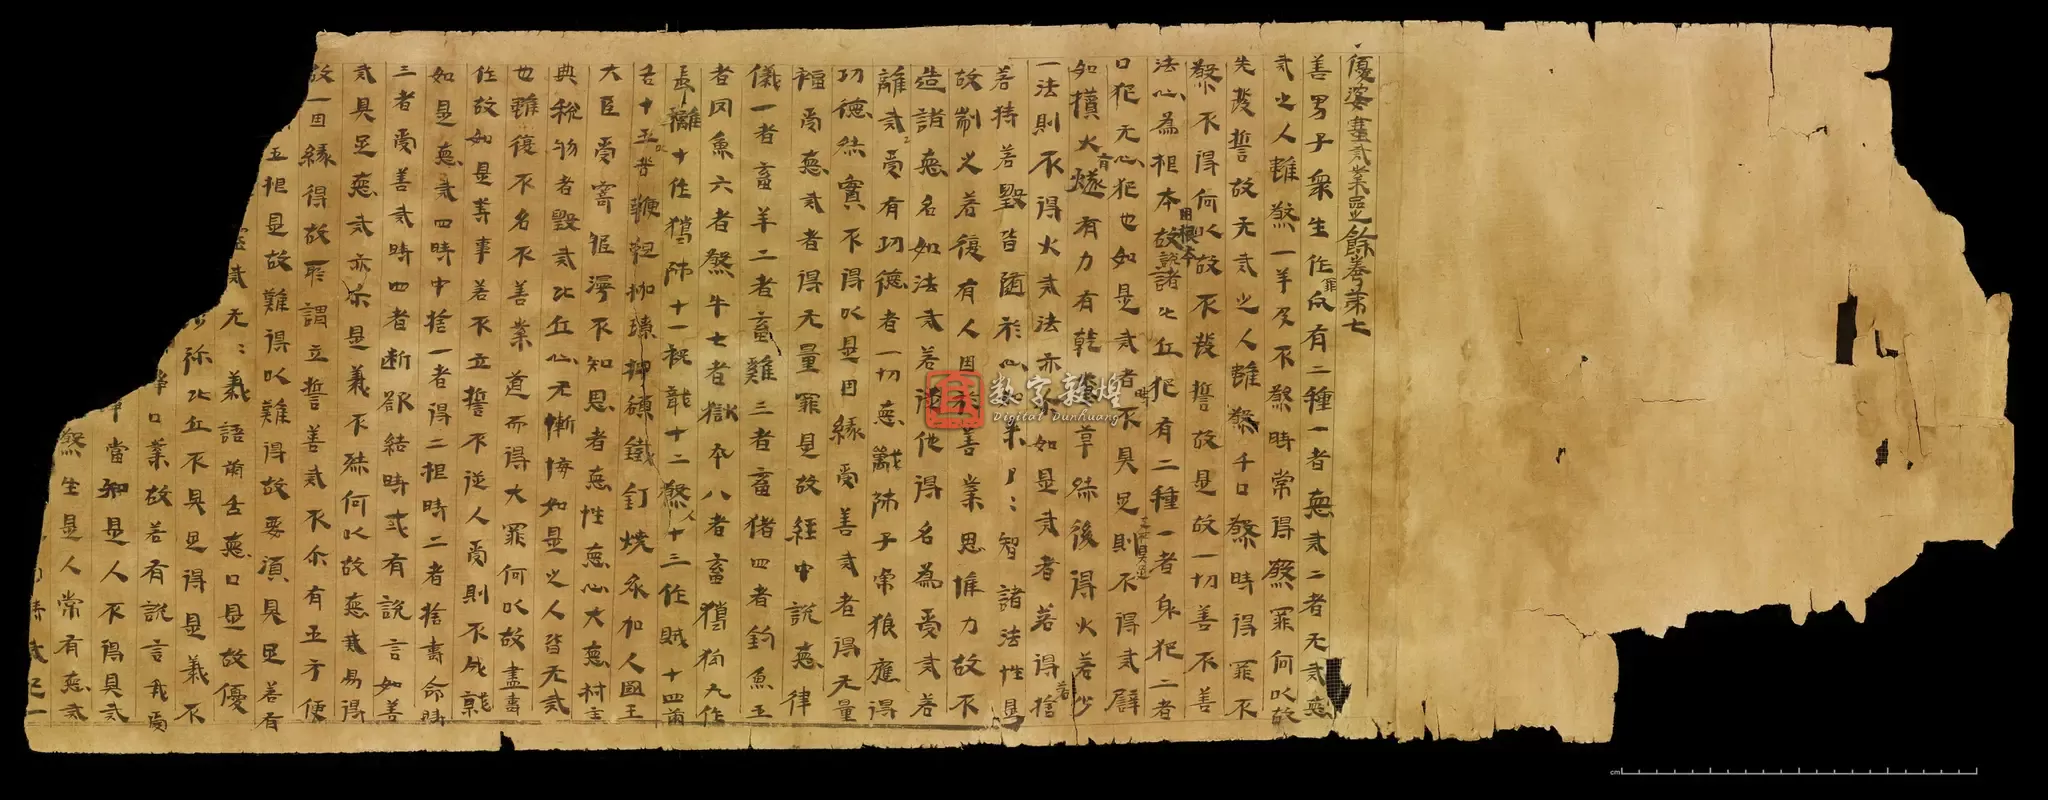 優婆塞戒業品之餘卷第七
善男子衆生作罪凡有二種一者惡戒二者无戒惡
戒之人雖煞一羊及不煞時常得煞罪何以故
先發誓故无戒之人雖煞千口煞時得罪不
煞不得何以故不發誓故是故一切善不善
法心為根本因根本故說諸比丘犯有二種一者身犯二者
口犯无心犯也如是戒者不具足則不得戒辟
如攢火有燧有力有乾草然後得火若少
一法則不得火戒法亦如是戒者若得捨
若持若毀皆隨於心如來了:智諸法性是
故制之若復有人因於善業思惟力故不
造諸惡名如法戒若從他得名為受戒若
離戒受有功德者一切惡獸師子乕狼應得
功德然實不得以是因緣受善戒者得无量
福受惡戒者得无量罪是故經中說惡律
儀一者畜羊二者畜雞三者畜猪四者釣魚五
者罔魚六者煞牛七者獄卒八者畜獦狗九作
長離十作獦師十一祝龍十二煞人十三作賊十四兩
舌十五以苦鞭
大臣受寄 不知恩者惡性惡心大惡村主
典稅物者毀戒比丘心无慚悔如是之人皆无戒
也雖復不名不善業道而得大罪何以故盡壽
作故如是等事若不立誓不從人受則不成就
如是惡戒四時中捨一者得二根時二者捨壽命時
三者受善戒時四者斷欲結時或有說言如善
戒具足惡戒亦尒是義不然何以故惡戒易得
故一因緣得故所謂立誓善戒不尒有五方便
五根是故難得以難得故要須具足若有
戒无:義語兩舌惡口是故優
弥比丘不具足得是義不
口業故若有說言我受
當知是人不得具戒
煞生是人常有惡戒